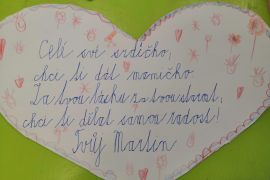 Celé své srdíčko,
chci ti dát maminčko.
Za tvou lásku za tvou starost,
chci ti dělat samou radost!
Tvůj Martin